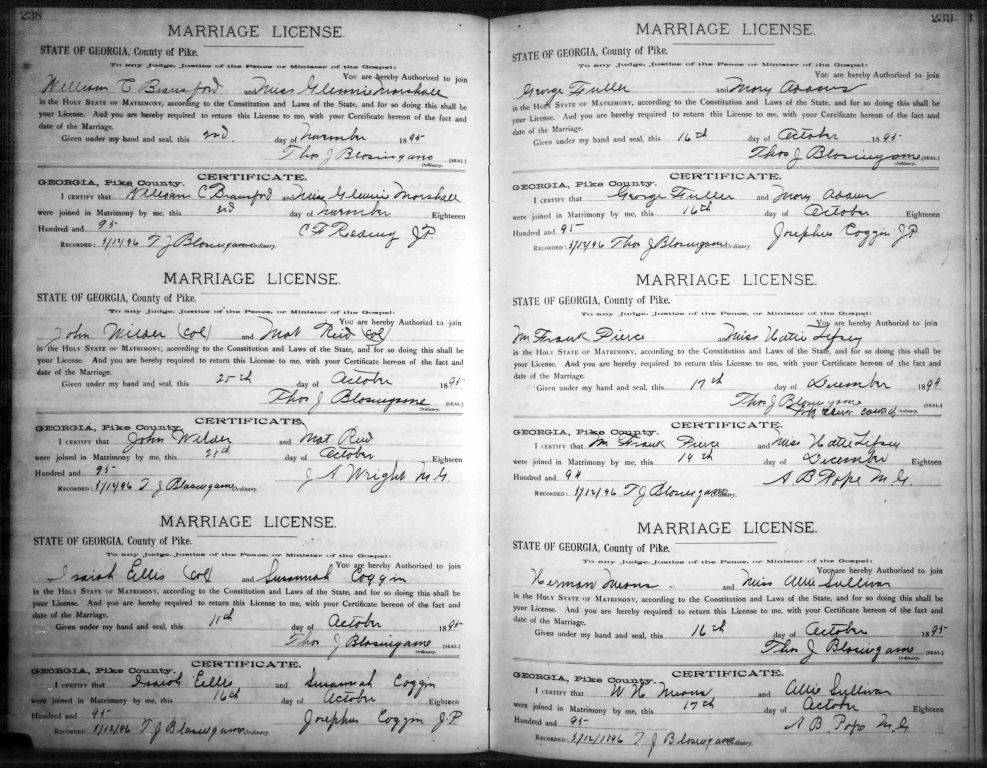 238
MARRIAGE LICENSE.
STATE OF GEORGIA, County of Pike.
To any Judge, Justice of the Peace or Minister of the Gospel:
You are hereby Authorized to join
William C Bransford and Miss Glennie Marshall
in the HOLY STATE OF MATRIMONY, according to the Constitution and Laws of the State, and for so doing this shall be
your License. And you are hereby required to return this License to me, with your Certificate hereon of the fact and
date of the Marriage.
Given under my hand and seal, this 2nd day of 1895
Thos J Blasingame (SEAL.)
Ordinary.
CERTIFICATE.
GEORGIA, Pike County.
I CERTIFY that William C Bransford and Miss Glennie Marshall
were joined in Matrimony by me, this 3rd day of Eighteen
Hundred and 95 C F Redding J P
RECORDED: 3/12/96 T J Blasingame Ordinary.
MARRIAGE LICENSE.
STATE OF GEORGIA, County of Pike.
To any Judge, Justice of the Peace, or Minister of the Gospel:
You are hereby Authorized to join
John Wilder (Col) and Mat Reid (Col)
in the HOLY STATE OF MATRIMONY, according to the Constitution and Laws of the State, and for so doing this shall be
your License. And you are hereby required to return this License to me, with your Certificate hereon of the fact and
date of the Marriage.
Given under my hand and seal, this 25th day of October 1895
Thos J Blasingame (SEAL)
Ordinary.
CERTIFICATE.
GEORGIA, Pike County.
I CERTIFY that John Wilder and Mat Reid
were joined in Matrimony by me, this day of October Eighteen
Hundred and 95 J A Wright M.G.
RECORDED: 3/12/96 T J Blasingame Ordinary.
MARRIAGE LICENSE.
STATE OF GEORGIA, County of Pike.
To any Judge, Justice of the Peace, or Minister of the Gospel:
You are hereby Authorized to join
Isaiah Ellis (Col) and Susannah Coggin
in the HOLY STATE OF MATRIMONY, according to the Constitution and Laws of the State, and for so doing this shall be
your License. And you are hereby required to return this License to me, with your Certificate hereon of the fact and
date of the Marriage.
Given under my hand and seal, this 11th day of October 1895
Thos J Blasingame (SEAL)
Ordinary.
CERTIFICATE.
GEORGIA, Pike County.
I CERTIFY that Isaiah Ellis and Susannah Coggin
were joined in Matrimony by me, this 16th day of October Eighteen
Hundred and 95 Josephus Coggin J.P.
RECORDED: 3/12/96 T. J Blasingame Ordinary.
239
MARRIAGE LICENSE.
STATE OF GEORGIA, County of Pike.
To any Judge, Justice of the Peace or Minister of the Gospel:
You are hereby Authorized to join
George Fuller and Mary Adams
in the HOLY STATE OF MATRIMONY, according to the Constitution and Laws of the State, and for so doing this shall be
your License. And you are hereby required to return this License to me, with your Certificate hereon of the fact and
date of the Marriage.
Given under my hand and seal, this 16th day of October 1895
Thos J Blasingame (SEAL.)
Ordinary.
CERTIFICATE.
GEORGIA, Pike County.
I CERTIFY that George Fuller and Mary Adams
were joined in Matrimony by me, this 16th day of October Eighteen
Hundred and 95 Josephus Coggin J.P.
RECORDED: 3/12/96 Thos J Blasingame Ordinary.
MARRIAGE LICENSE.
STATE OF GEORGIA, County of Pike.
To any Judge, Justice of the Peace, or Minister of the Gospel:
You are hereby Authorized to join
Mr Frank Pierce and Miss Hatie Lifsey
in the HOLY STATE OF MATRIMONY, according to the Constitution and Laws of the State, and for so doing this shall be
your License. And you are hereby required to return this License to me, with your Certificate hereon of the fact and
date of the Marriage.
Given under my hand and seal, this 17th day of December 1894
Thos J Blasingame (SEAL.)
Ordinary.
CERTIFICATE.
GEORGIA, Pike County.
I CERTIFY that Mr Frank Pierce and Miss Hatie Lifsey
were joined in Matrimony by me, this 19th day of December Eighteen
Hundred and 94 A. B Pope M. G.
RECORDED: 3/12/96 T J Blasingame Ordinary.
MARRIAGE LICENSE.
STATE OF GEORGIA, County of Pike.
To any Judge, Justice of the Peace, or Minister of the Gospel:
You are hereby Authorized to join
Herman Means and Miss Allie Sullivan
in the HOLY STATE OF MATRIMONY, according to the Constitution and Laws of the State, and for so doing this shall be
your License. And you are hereby required to return this License to me, with your Certificate hereon of the fact and
date of the Marriage.
Given under my hand and seal, this 16th day of October 1895
Thos J Blasingame (SEAL.)
Ordinary.
CERTIFICATE.
GEORGIA, Pike County.
I CERTIFY that W H Means and Allie Sullivan
were joined in Matrimony by me, this 17th day of October Eighteen
Hundred and 95 A B. Pope M.G.
RECORDED: 3/12/1896 T J Blasingame Ordinary.